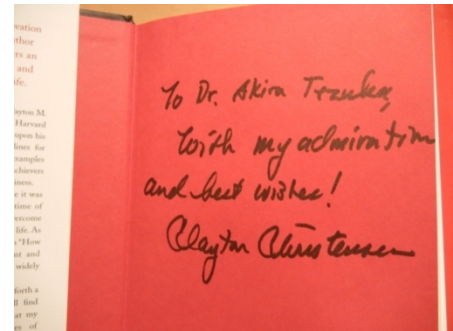 vation
thor
rs an
and
ife.
ayton M.
Harvard
upon his
lines for
xamples
chievers
iness.
e it was
time of
ercome
life. As
"How
ut and
widely
forth a
ll find
at my
es of
To Dr. Akira Tezuka,
With my admiration
and best wishes!
Clayton Christensen